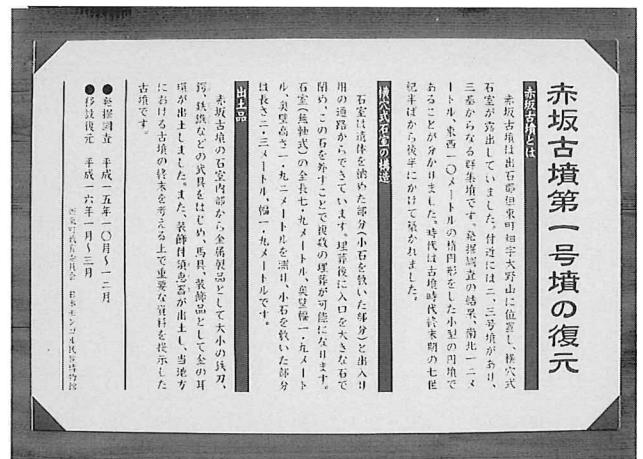 赤坂古墳第一号墳の復元
赤坂古墳とは
赤坂古墳は出石郡但東町畑字大野山に位置し、横穴式
石室が露出していました。付近には二、三号墳があり、
三基からなる群集墳です。発掘調査の結果、南北一二メ
ートル、東西一〇メートルの楕円形をした小型の円墳で
あることが分かりました。時代は古墳時代終末期の七世
紀半ばから後半にかけて築かれました。
横穴式石室の構造
石室は遺体を納めた部分(小石を敷いた部分)と出入り
用の通路からできています。埋葬後に入口を大きな石で
閉め、この石を外すことで複数の埋葬が可能になります。
石室(無軸式)の全長七・九メートル、奥壁幅一・九メート
ル、奥壁高さ一・九二メートルを測り、小石を敷いた部分
は長さ二・三メートル、幅一・九メートルです。
出土品
赤坂古墳の石室内部から金属製品として大小の鉄刀、
鍔、鉄鏃などの武具をはじめ、馬具、装飾品として金の耳
環が出土しました。また、装飾付須恵器が出土し、当地方
における古墳の終末を考える上で重要な資料を提示した
古墳です。
●発掘調査 平成一五年一〇月〜一二月
●移設復元 平成一六年一月〜三月
但東町教育委員会 日本モンゴル民族博物館